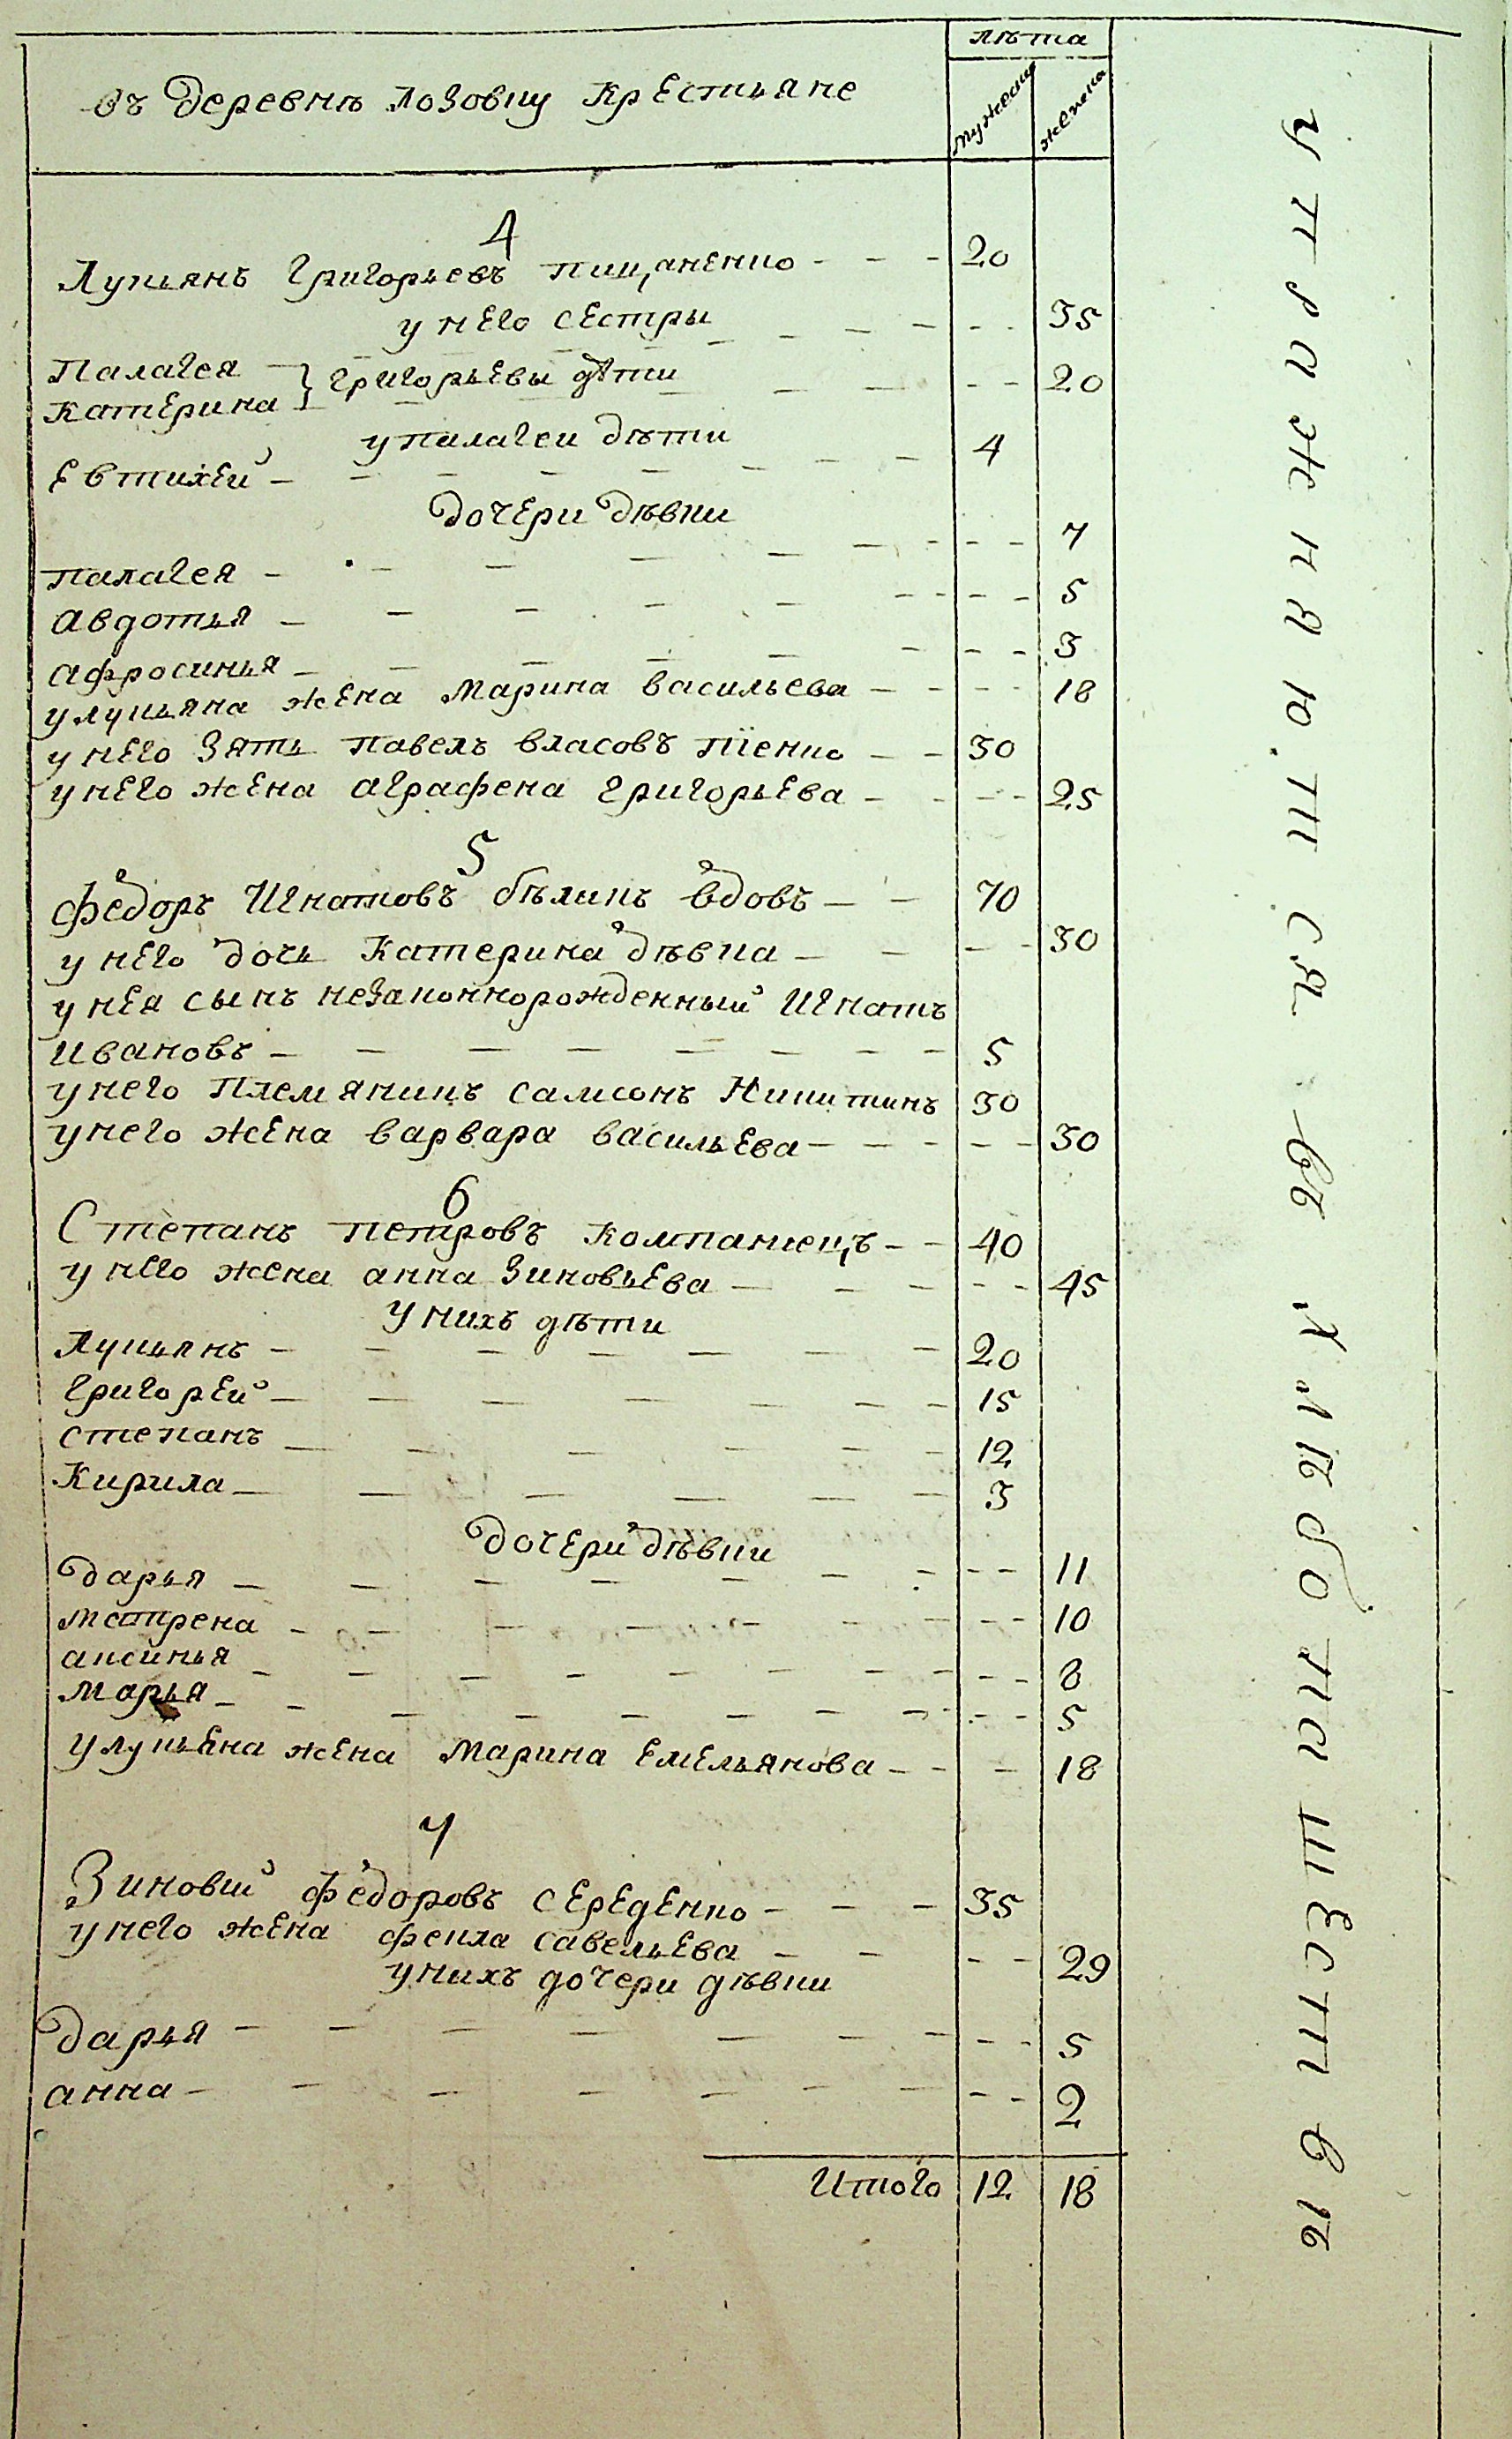 лѣта
въ деревнѣ Лозовку крестьяне мужеска женска
4
Лукьянъ Григорьевъ Пищаненко - - - 20
у него сестры - - - - - 35
Палагея
Катерина } Григорьевы дѣти - - - - 20
у палагеи дѣти
Евтихей - - - - - - - 4
дочери дѣвки
палагея - - - - - - - - - 7
авдотья - - - - - - - - - 5
афросинья - - - - - - - - 3
у лукьяна жена Марина васильева - - - - 18
у него зять павелъ власовъ - - 30
у него жена аграфена григорьева - - - - 25
5
Федоръ Игнатовъ бѣликъ вдовъ - - 70
у него дочь Катерина дѣвка - - - - 30
у нея сынъ незаконнорожденный Игнатъ
Ивановъ - - - - - - - - 5
у него племяникъ самсонъ Никитинъ 30
у него жена варвара васильева - - - - - 30
6
Степанъ петровъ компаниецъ - - 40
у него жена анна Зиновьева - - - - - 45
у нихъ дѣти
Лукьянъ - - - - - - - 20
григорей - - - - - - - 15
степанъ - - - - - - 12
Кирила - - - - - - 3
дочери дѣвки
дарья - - - - - - - - - 11
мотрена - - - - - - - - - 10
аксинья - - - - - - - - - - 8
марья - - - - - - - - - - 5
у лукьяна жена Марина Емельянова - - - 18
7
Зиновий Федоровъ середенко - - - 35
у него жена фекла савельева - - - - 29
у нихъ дочери дѣвки
дарья - - - - - - - - - 5
анна - - - - - - - - - 2
Итого 12 18
упражняются въ хлѣбопашествѣ